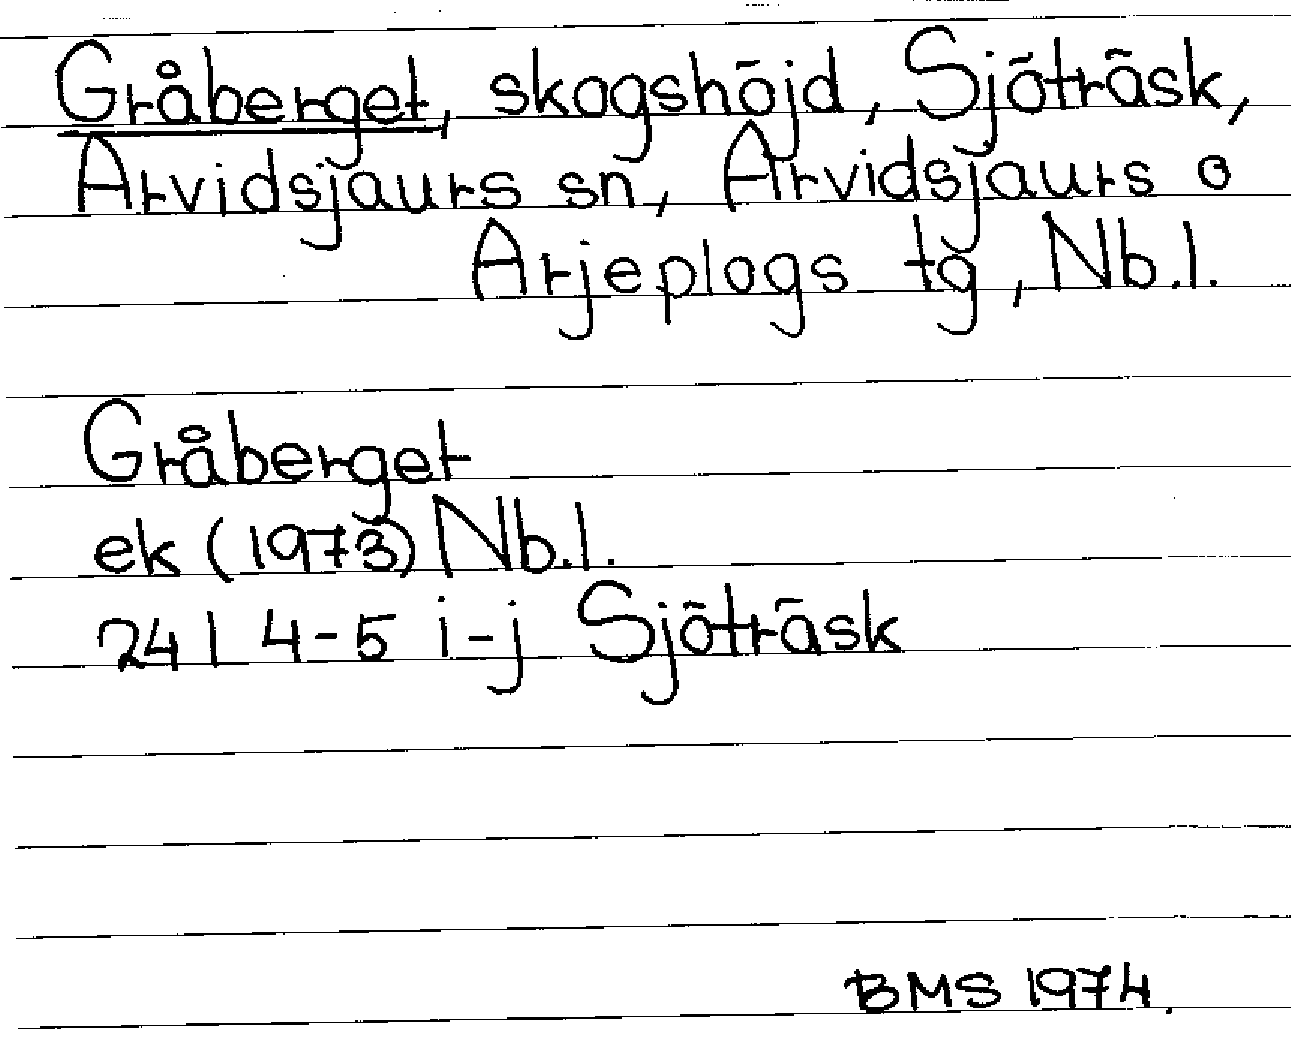 Gråberget, skogshöjd, Sjöträsk,
Arvidsjaurs sn, Arvidsjaurs o
Arjeplogs tg, Nb.l.
Gråberget
ek (1973) Nb.l.
24 I 4-5 i-j Sjöträsk
BMS 1974.